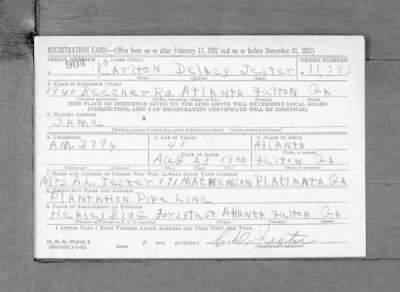 REGISTRATION CARD—(Men born on or after February 17, 1897 and on or before December 31, 1921)
SERIAL NUMBER 1. NAME (Print) ORDER NUMBER
904 Carlton Delacy Jester 11,393
2. PLACE OF RESIDENCE (Print)
1740 Beecher Rd. Atlanta Fulton Ga
[THE PLACE OF RESIDENCE GIVEN ON THE LINE ABOVE WILL DETERMINE LOCAL BOARD
JURISDICTION; LINE 2 OF REGISTRATION CERTIFICATE WILL BE IDENTICAL]
3. MAILING ADDRESS
SAME
[Mailing address if other than place indicated on line 2. If same insert word same]
4. TELEPHONE 5. AGE IN YEARS 6. PLACE OF BIRTH
AM. 2794 41 Atlanta
DATE OF BIRTH
Aug 23 1900 Fulton Ga
7. NAME AND ADDRESS OF PERSON WHO WILL ALWAYS KNOW YOUR ADDRESS
Mrs A.L. Jester 171 Atlanta Ga
8. EMPLOYER'S NAME AND ADDRESS
Plantation Pipe Line
9. PLACE OF EMPLOYMENT OR BUSINESS
Healey Bldg. Forsyth St Atlanta Fulton Ga
I AFFIRM THAT I HAVE VERIFIED ABOVE ANSWERS AND THAT THEY ARE TRUE.
D. S. S. Form 1
C D Jester